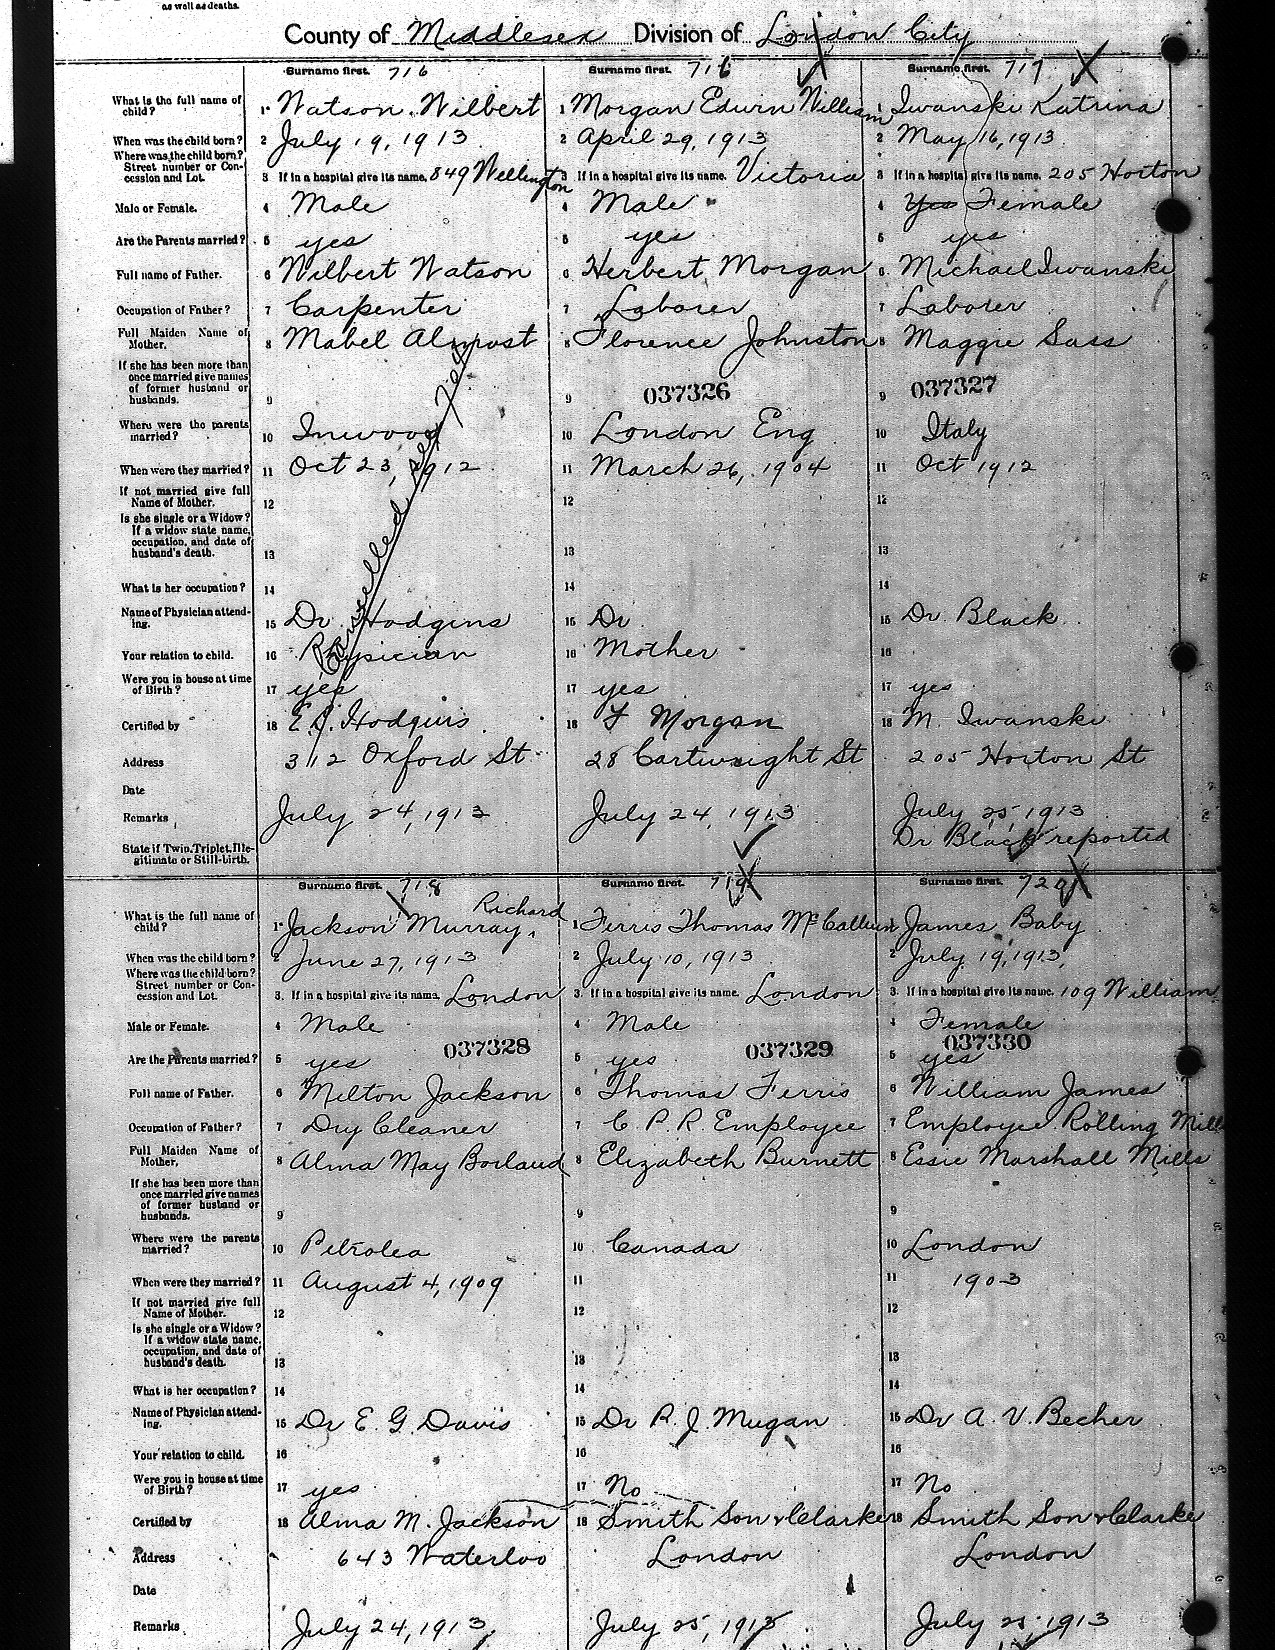 as well as deaths.
County of Middlesex Division of London City
Surname first. 716 Surname first. 716 Surname first. 717
What is the full name of child? 1 Watson, Wilbert 1 Morgan Edwin William 1 Iwanski Katrina
When was the child born? 2 July 19, 1913 2 April 29, 1913 2 May 16, 1913
Where was the child born? Street number or Concession and Lot. 3 If in a hospital give its name. 849 Wellington 3 If in a hospital give its name. Victoria 3 If in a hospital give its name. 205 Horton
Male or Female. 4 Male 4 Male 4 Yes Female
Are the Parents married? 5 yes 5 yes 5 yes
Full name of Father. 6 Wilbert Watson 6 Herbert Morgan 6 Michael Iwanski
Occupation of Father? 7 Carpenter 7 Laborer 7 Laborer
Full Maiden Name of Mother. 8 Mabel Almost 8 Florence Johnston 8 Maggie Sass
If she has been more than once married give names of former husband or husbands. 9 9 037326 9 037327
Where were the parents married? 10 Inwood 10 London Eng 10 Italy
When were they married? 11 Oct 23, 1912 11 March 26, 1904 11 Oct 1912
If not married give full Name of Mother. 12 12 12
Is she single or a Widow? If a widow state name, occupation, and date of husband's death. 13 13 13
What is her occupation? 14 14 14
Name of Physician attending. 15 Dr. Hodgins 15 Dr 15 Dr Black
Your relation to child. 16 Physician 16 Mother 16
Were you in house at time of Birth? 17 yes 17 yes 17 yes
Certified by 18 E. Hodgins 18 F Morgan 18 M. Iwanski
Address 312 Oxford St 28 Cartwright St 205 Horton St
Date
Remarks July 24, 1913 July 24, 1913 July 25, 1913
State if Twin, Triplet, Illegitimate or Still-birth. Dr Black reported
Cancelled
Surname first. 718 Surname first. 719 Surname first. 720
What is the full name of child? 1 Jackson Murray, Richard 1 Ferris Thomas McCallum 1 James Baby
When was the child born? 2 June 27, 1913 2 July 10, 1913 2 July 19, 1913
Where was the child born? Street number or Concession and Lot. 3. If in a hospital give its name. London 3. If in a hospital give its name. London 3. If in a hospital give its name. 109 William
Male or Female. 4 Male 4 Male 4 Female
Are the Parents married? 5 yes 037328 5 yes 037329 5 yes 037330
Full name of Father. 6 Milton Jackson 6 Thomas Ferris 6 William James
Occupation of Father? 7 Dry Cleaner 7 C. P. R. Employee 7 Employee Rolling Mills
Full Maiden Name of Mother. 8 Alma May Borland 8 Elizabeth Burnett 8 Essie Marshall Mills
If she has been more than once married give names of former husband or husbands. 9 9 9
Where were the parents married? 10 Petrolea 10 Canada 10 London
When were they married? 11 August 4, 1909 11 11 1903
If not married give full Name of Mother. 12 12 12
Is she single or a Widow? If a widow state name, occupation, and date of husband's death. 13 13 13
What is her occupation? 14 14 14
Name of Physician attending. 15 Dr E. G. Davis 15 Dr R. J. Mugan 15 Dr A. V. Becher
Your relation to child. 16 16 16
Were you in house at time of Birth? 17 yes 17 No 17 No
Certified by 18 Alma M. Jackson 18 Smith Son & Clarke 18 Smith Son & Clarke
Address 643 Waterloo London London
Date
Remarks July 24, 1913 July 25, 1913 July 25, 1913